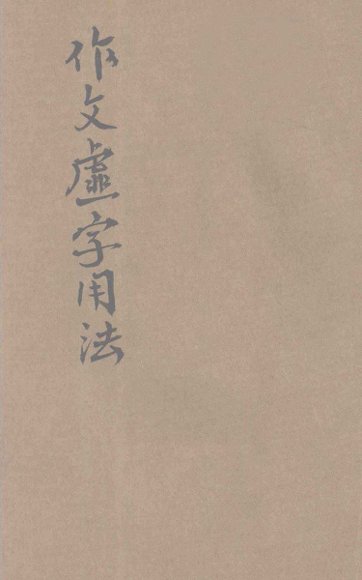 作文虛字用法